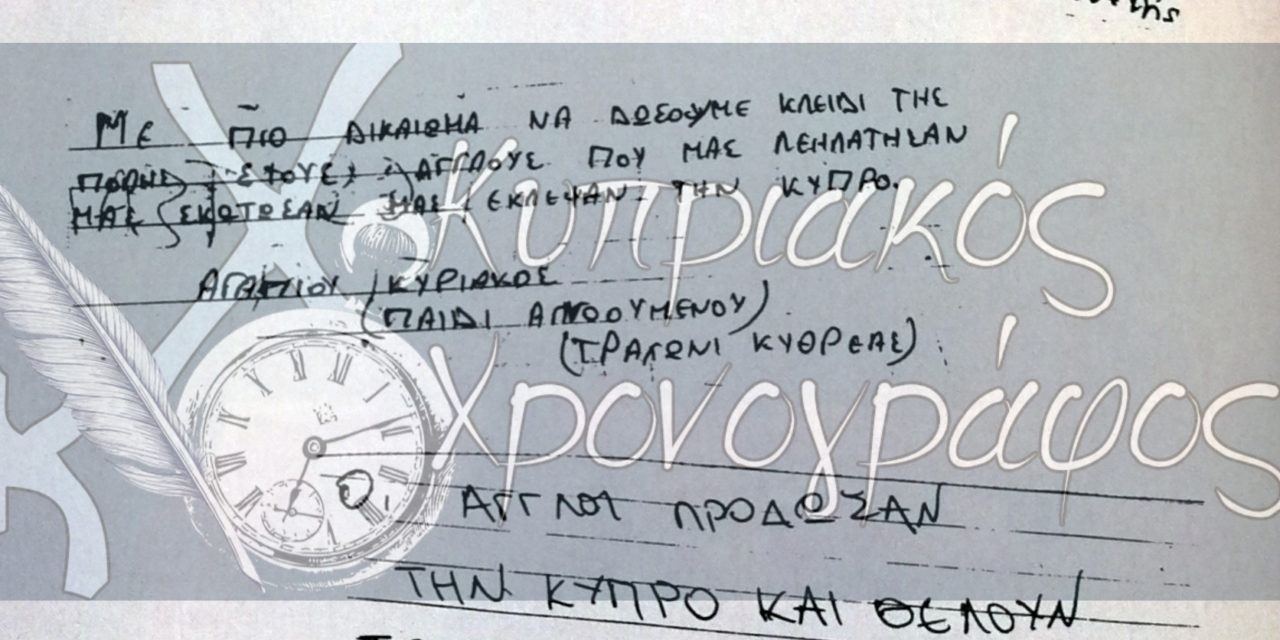 ΜΕ ΠΙΟ ΔΙΚΑΙΩΜΑ ΝΑ ΔΩΣΟΥΜΕ ΚΛΕΙΔΙ ΤΗΣ
ΣΤΟΥΣ ΑΓΓΛΟΥΣ ΠΟΥ ΜΑΣ ΛΕΗΛΑΤΗΣΑΝ
ΜΑΣ ΣΚΩΤΩΣΑΝ ΜΑΣ ΕΚΛΕΨΑΝ ΤΗΝ ΚΥΠΡΟ.
ΑΓΑΠΙΟΥ ΚΥΡΙΑΚΟΣ
(ΠΑΙΔΙ ΑΓΝΟΟΥΜΕΝΟΥ)
(ΤΡΑΧΩΝΙ ΚΥΘΡΕΑΣ)
Κυπριακός
Χρονογράφος
Οι ΑΓΓΛΟΙ ΠΡΟΔΩΣΑΝ
ΤΗΝ ΚΥΠΡΟ ΚΑΙ ΘΕΛΟΥΝ